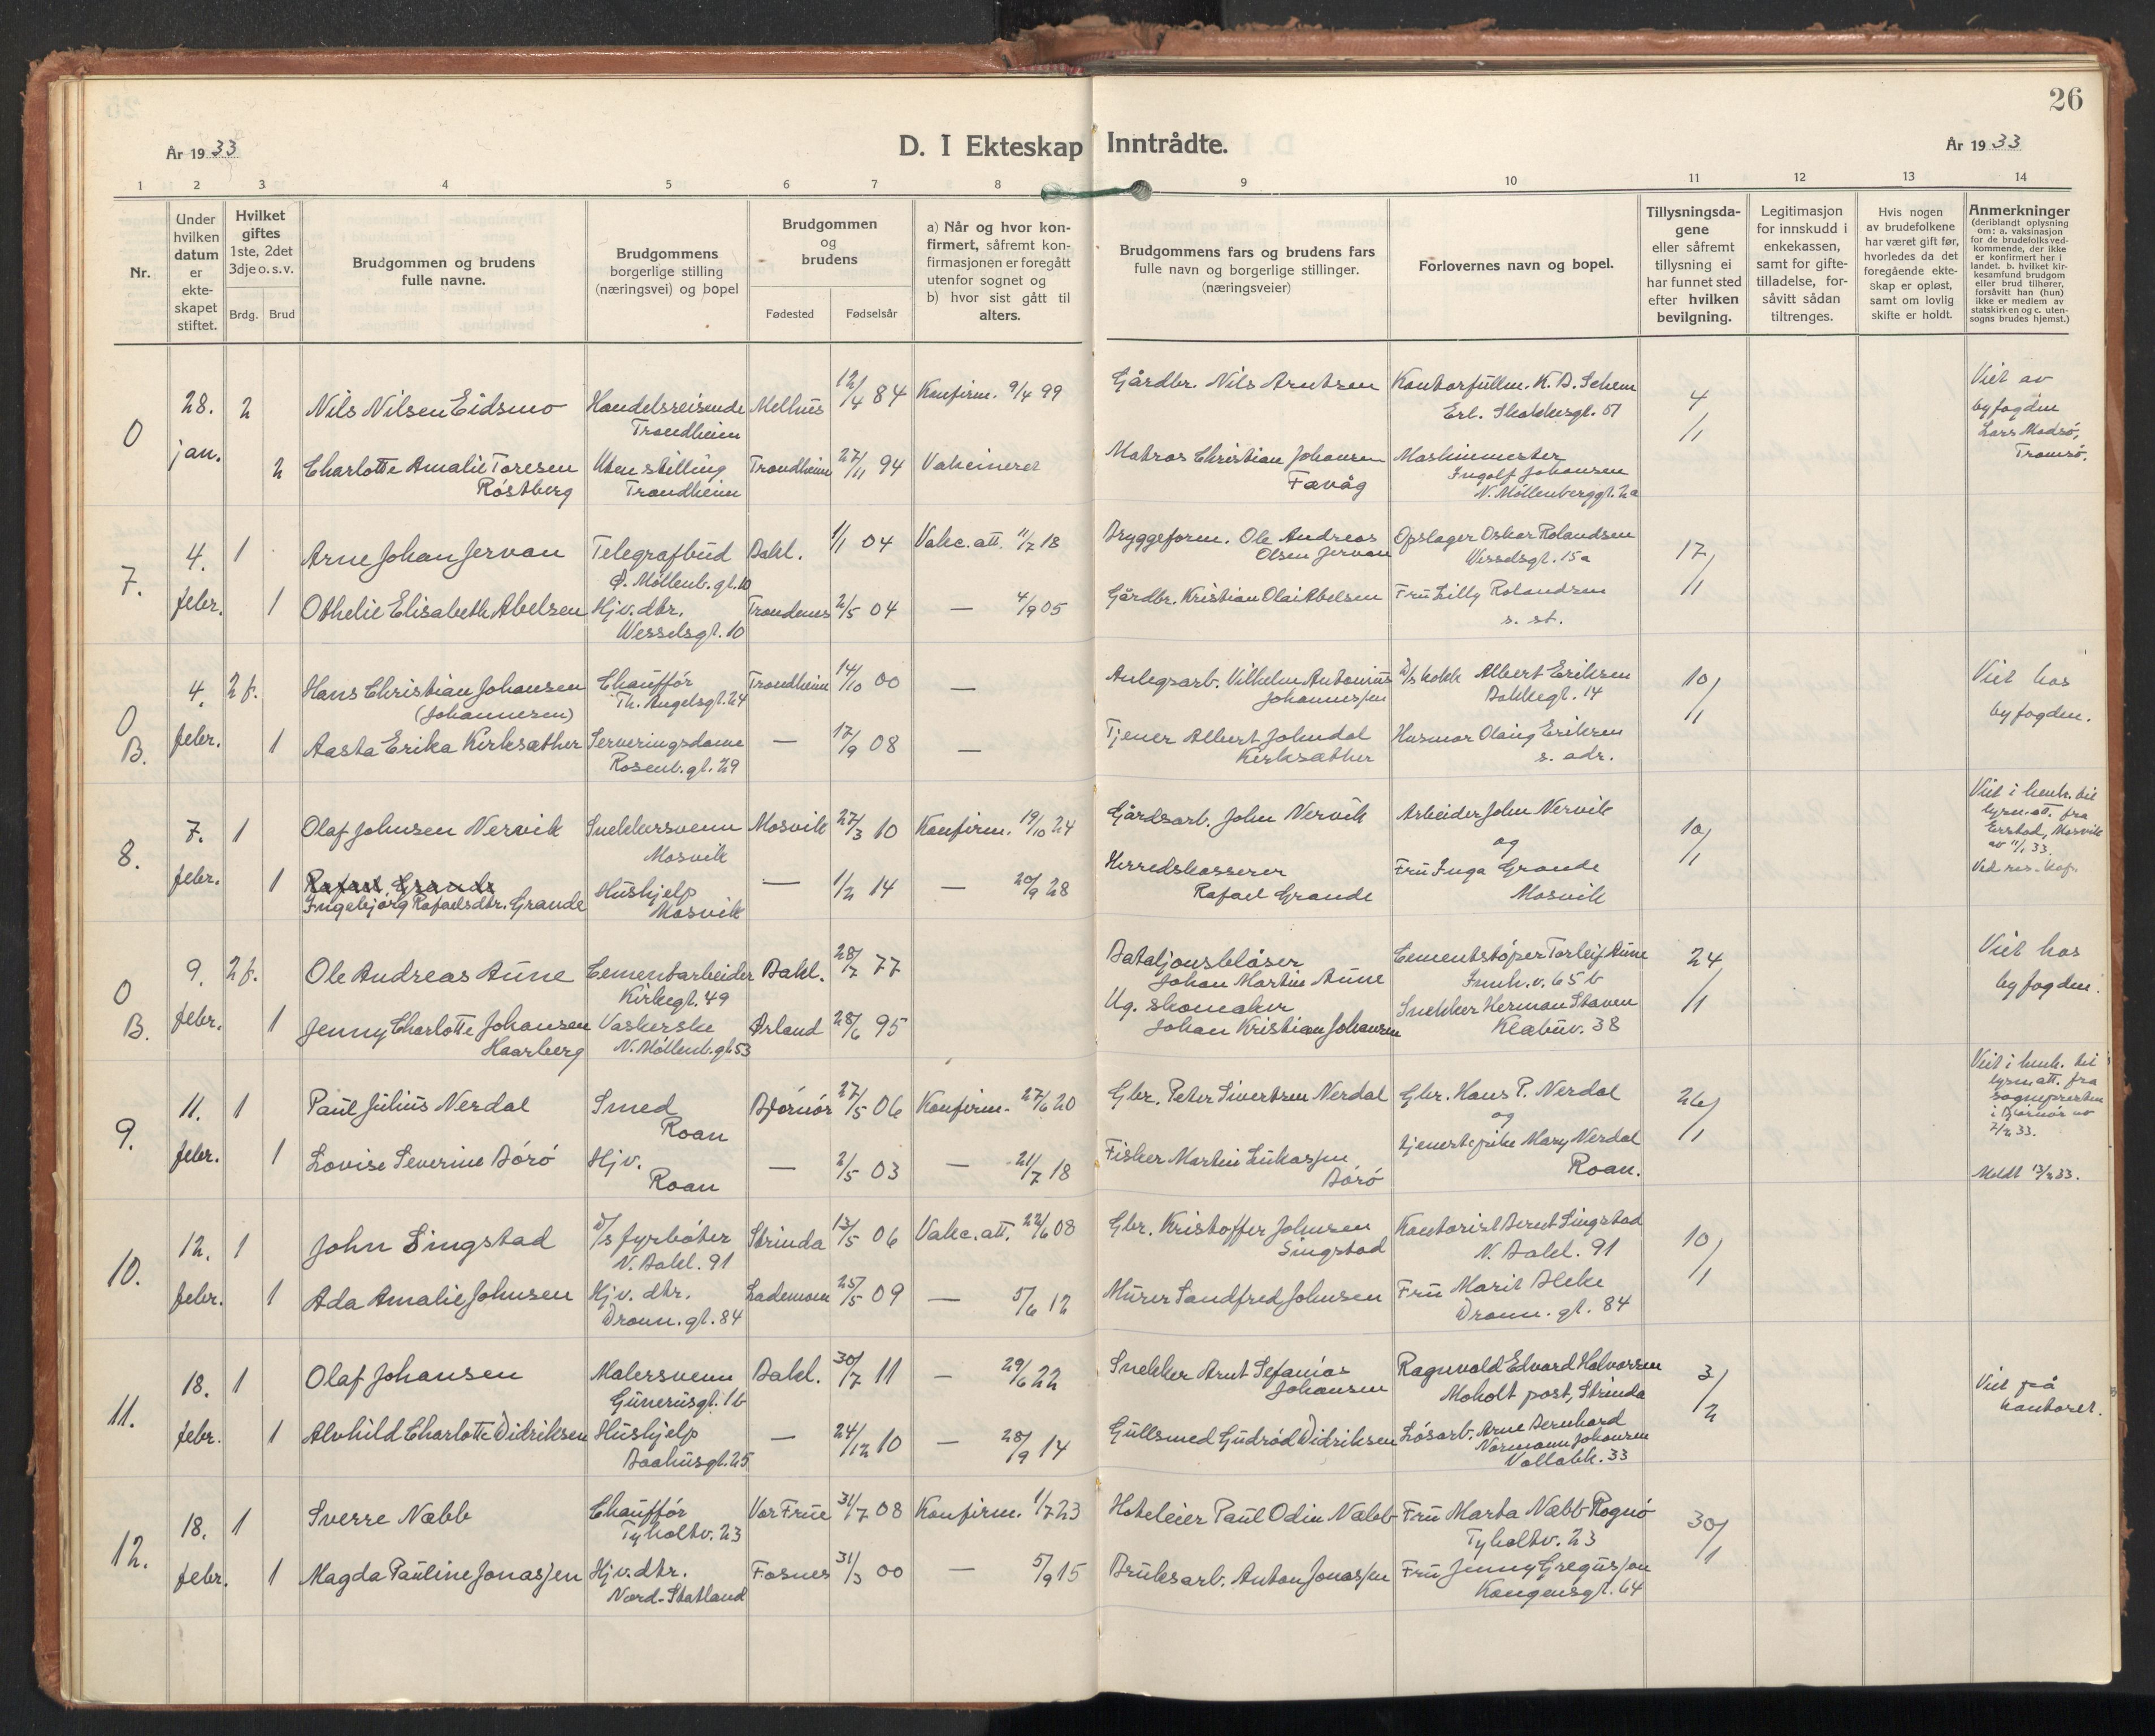 26
År 1933
D. I Ekteskap Inntrådte.
År 1933
1 2 3 4 5 6 7 8 9 10 11 12 13 14
Nr.
Under
hvilken
datum
er
ekte-
skapet
stiftet.
Hvilket
giftes
1ste, 2det
3dje o. s. v.
Brdg. Brud
Brudgommen og brudens
fulle navne.
Brudgommens
borgerlige stilling
(næringsvei) og bopel
Brudgommen
og
brudens
Fødested Fødselsår
a) Når og hvor kon-
firmert, såfremt kon-
firmasjonen er foregått
utenfor sognet og
b) hvor sist gått til
alters.
Brudgommens fars og brudens fars
fulle navn og borgerlige stillinger.
(næringsveier)
Forlovernes navn og bopel.
Tillysningsda-
gene
eller såfremt
tillysning ei
har funnet sted
efter hvilken
bevilgning.
Legitimasjon
for innskudd i
enkekassen,
samt for gifte-
tilladelse, for-
såvitt sådan
tiltrenges.
Hvis nogen
av brudefolkene
har været gift før,
hvorledes da det
foregående ekte-
skap er opløst,
samt om lovlig
skifte er holdt.
Anmerkninger
(deriblandt oplysning
om: a. vaksinasjon
for de brudefolks ved-
kommende, der ikke
er konfirmert her i
landet. b. hvilket kir-
kesamfund brudgom
eller brud tilhører,
forsåvitt han (hun)
ikke er medlem av
statskirken og c. uten-
sogns brudes hjemst.)
0
28. jan.
2
Nils Nilsen Eidsmo
Handelsreisende
Trondheim
Melhus
12/4 84
Konfirm. 9/4 99
Gårdbr. Nils Arntsen
Kontorfullm. K. D. Schem
Erl. Skakkesgt. 51
4/1
Viet av
byfogden
Lars Madsö,
Tromsö.
2
Charlotte Amalie Toresen
Röstberg
Uten stilling
Trondheim
Trondheim
27/11 94
Vakcineret
Matros Christian Johansen
Fævåg
Maskinmester
Ingolf Johansen
N. Möllenberggt. 2a
7.
4. febr.
1
Arne Johan Jervan
Telegrafbud
Ö. Möllenb. gt. 10
Bakl.
1/1 04
Vakc. att. 11/7 18
Bryggeform. Ole Andreas
Olsen Jervan
Opslager Oskar Rolandsen
Wesselsgt. 15a
17/1
1
Othelie Elisabeth Abelsen
Hjv. dtr.
Wesselsgt. 10
Trondenes
2/5 04
— 4/9 05
Gårdbr. Kristian Olai Abelsen
Fru Lilly Rolandsen
s. st.
0
B.
4. febr.
2 f.
Hans Christian Johansen
(Johannesen)
Chaufför
Th. Angelsgt. 24
Trondheim
14/10 00
—
Anlegsarb. Vilhelm Antonius
Johannessen
D/s kokk Albert Eriksen
Bakkegt. 14
10/1
Viet hos
byfogden.
1
Aasta Erika Kirksæther
Serveringsdame
Rosenb. gt. 29
—
17/9 08
—
Tjener Albert Johndal
Kirksæther
Husmor Olaug Eriksen
s. adr.
8.
7. febr.
1
Olaf Johnsen Nervik
Snekkersvenn
Mosvik
Mosvik
27/3 10
Konfirm. 19/10 24
Gårdsarb. John Nervik
Arbeider John Nervik
og
10/1
Viet i henh. til
lysn. att. fra
Erstad, Mosvik
av 11/1 33.
Ved res. kap.
1
Rafael Grande
Ingebjörg Rafaelsdtr. Grande
Hushjelp
Mosvik
—
1/2 14
— 20/9 28
Herredskasserer
Rafael Grande
Fru Inga Grande
Mosvik
0
B.
9. febr.
2 f.
Ole Andreas Aune
Cementarbeider
Kirkegt. 49
Bakl.
28/7 77
Bataljonsblåser
Johan Martin Aune
Cementstöper Torleif Aune
Innh. v. 65 b
24/1
Viet hos
byfogden.
1
Jenny Charlotte Johansen
Haarberg
Vaskerske
N. Möllenb. gt. 53
Örland
28/6 95
Ug. skomaker
Johan Kristian Johansen
Snekker Herman Staven
Klæbuv. 38
9.
11. febr.
1
Paul Julius Nerdal
Smed
Roan
Björnör
27/5 06
Konfirm. 27/6 20
Gbr. Peter Sivertsen Nerdal
Gbr. Hans P. Nerdal
og
26/1
Viet i henh. til
lysn. att. fra
sognepresten
i Björnör av
7/2 33.
1
Lovise Severine Börö
Hjv.
Roan
—
2/5 03
— 21/7 18
Fisker Martin Lukassen
Börö
tjenestepike Mary Nerdal
Roan.
Meldt 13/2 33.
10.
12. febr.
1
John Singstad
D/s fyrböter
N. Bakl. 91
Strinda
13/5 06
Vakc. att. 22/6 08
Gbr. Kristoffer Johnsen
Singstad
Kontorist Bernt Singstad
N. Bakl. 91
10/1
1
Ada Amalie Johnsen
Hjv. dtr.
Dronn. gt. 84
Lademoen
25/5 09
— 5/6 12
Murer Sandfred Johnsen
Fru Marit Bleke
Dronn. gt. 84
11.
18. febr.
1
Olaf Johansen
Malersvenn
Gunerusgt. 1b
Bakl.
30/7 11
— 29/6 22
Snekker Arnt Sefanias
Johansen
Ragnvald Edvard Halvorsen
Moholt post, Strinda
3/2
Viet på
kontoret.
1
Alvhild Charlotte Didriksen
Hushjelp
Baahusgt. 25
—
24/12 10
— 28/9 14
Gullsmed Gudröd Didriksen
Lösarb. Arne Bernhard
Normann Johansen
Vollabk. 33
12.
18. febr.
1
Sverre Næbb
Chaufför
Tyholtv. 23
Vor Frue
31/7 08
Konfirm. 1/7 23
Hoteleier Paul Odin Næbb
Fru Marta Næbb Rognö
Tyholtv. 23
30/1
1
Magda Pauline Jonassen
Hjv. dtr.
Nord-Statland
Fosnes
31/3 00
— 5/9 15
Bruksarb. Anton Jonassen
Fru Jenny Gregussen
Kongensgt. 64